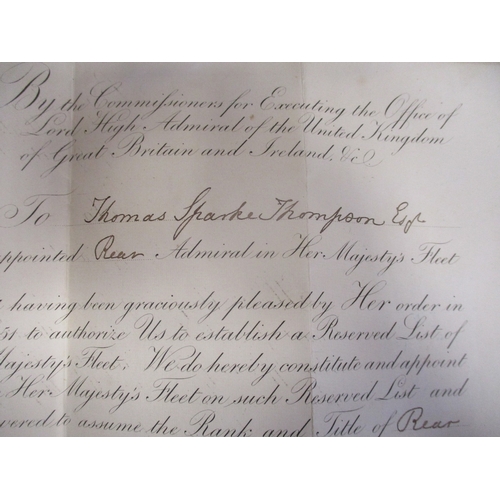 By the Commissioners for Executing the Office of
Lord High Admiral of the United Kingdom
of Great Britain and Ireland, &c
To Thomas Sparke Thompson Esqr
ppointed Rear Admiral in Her Majesty's Fleet
having been graciously pleased by Her order in
51 to authorize Us to establish a Reserved List of
Majesty's Fleet, We do hereby constitute and appoint
Her Majesty's Fleet on such Reserved List and
wered to assume the Rank and Title of Rear